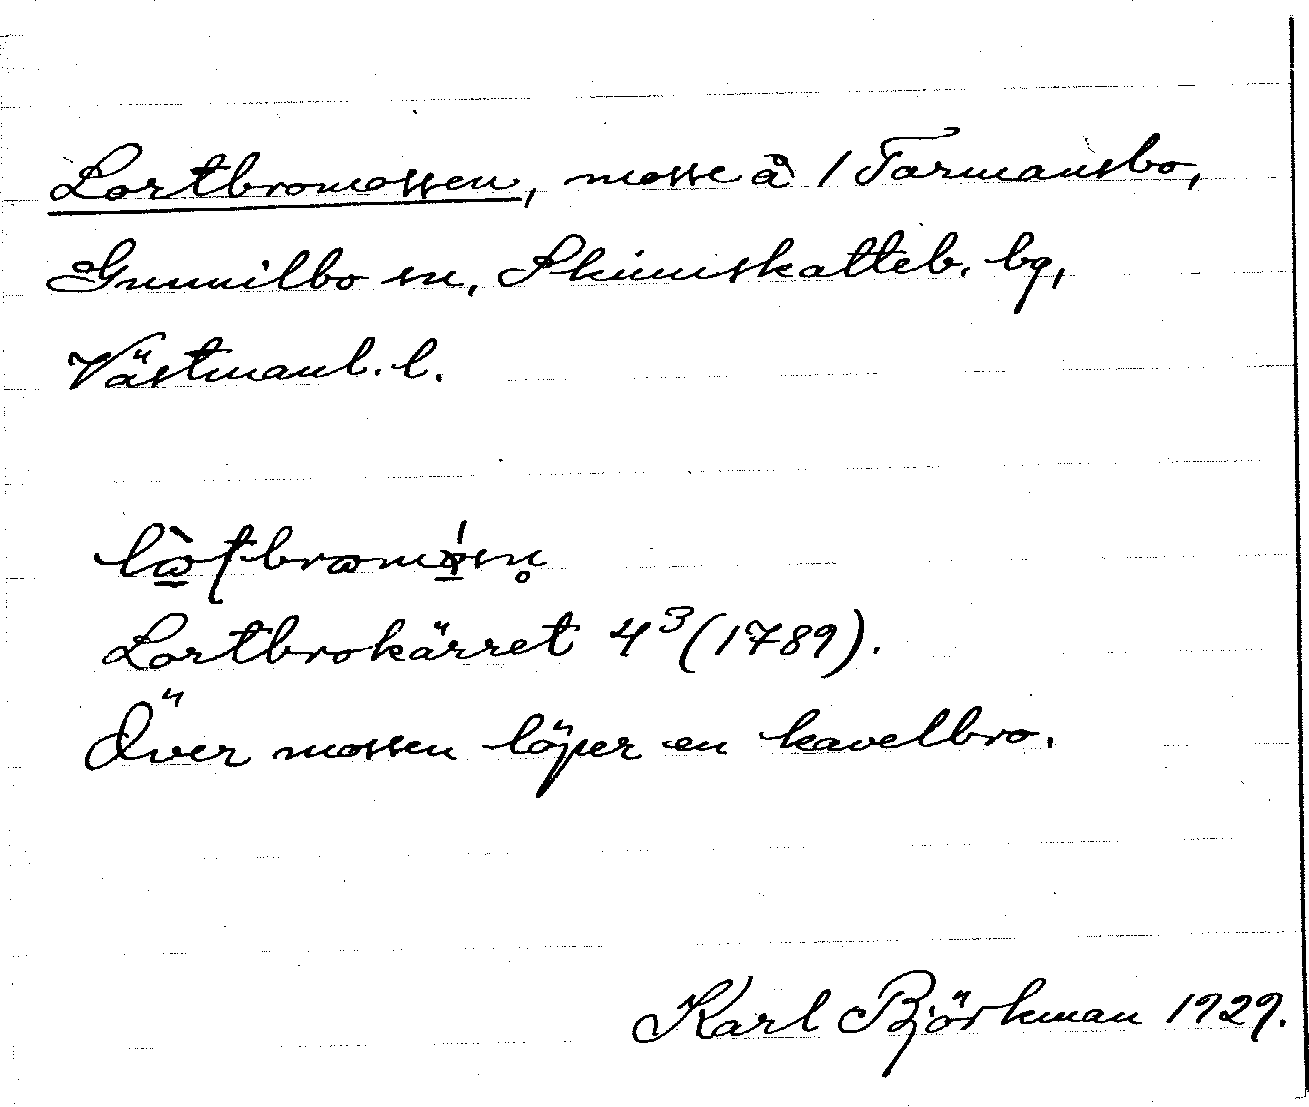 Lortbromossen, mosse å 1 Tarmansbo,
Gunnilbo sn, Skinnskatteb. bg,
Västmanl. l.
Lortbrokärret 4³ (1789).
Över mossen löper en kavelbro.
Karl Björkman 1929.